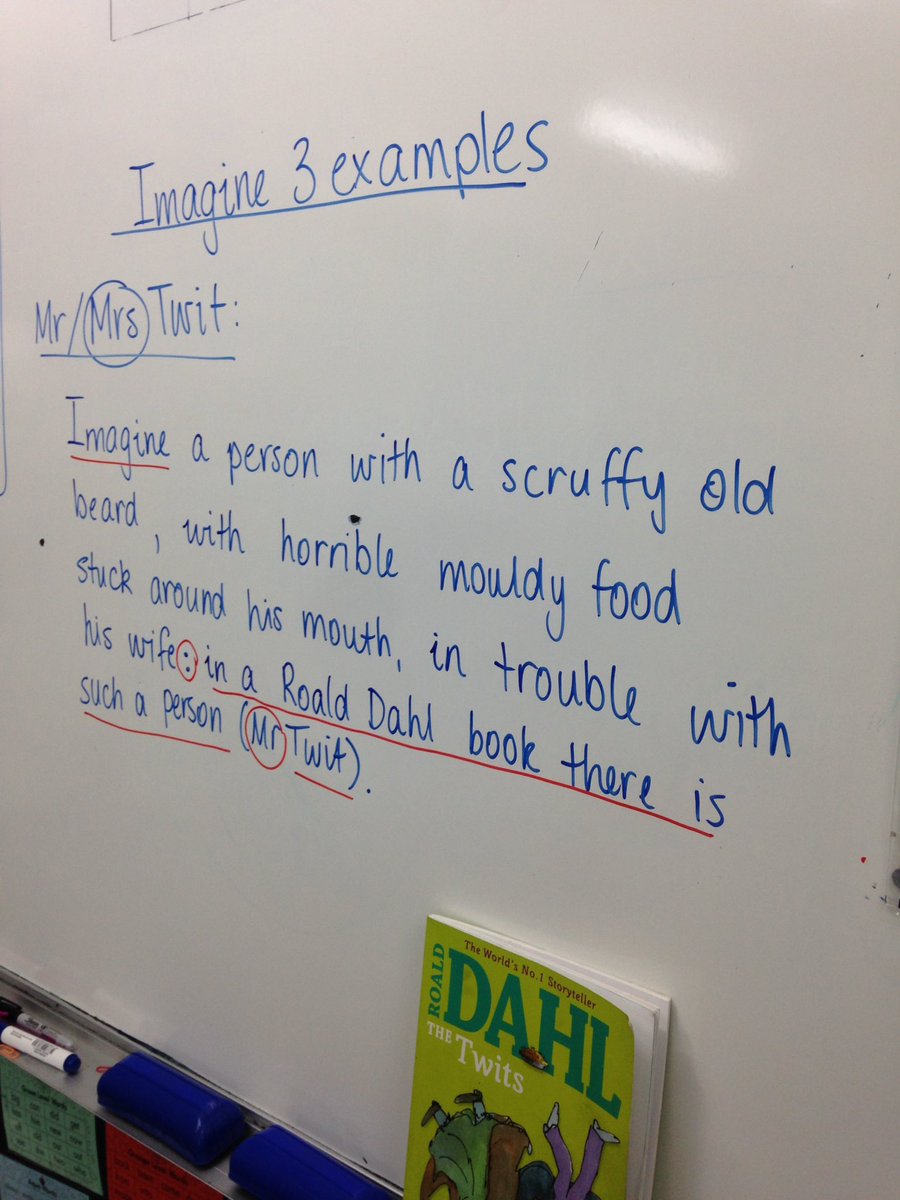 Imagine 3 examples
Mr/Mrs Twit:
Imagine a person with a scruffy old
beard, with horrible mouldy food
stuck around his mouth, in trouble with
his wife: in a Roald Dahl book there is
such a person (Mr Twit).
The World's No.1 Storyteller
ROALD
DAHL
THE Twits